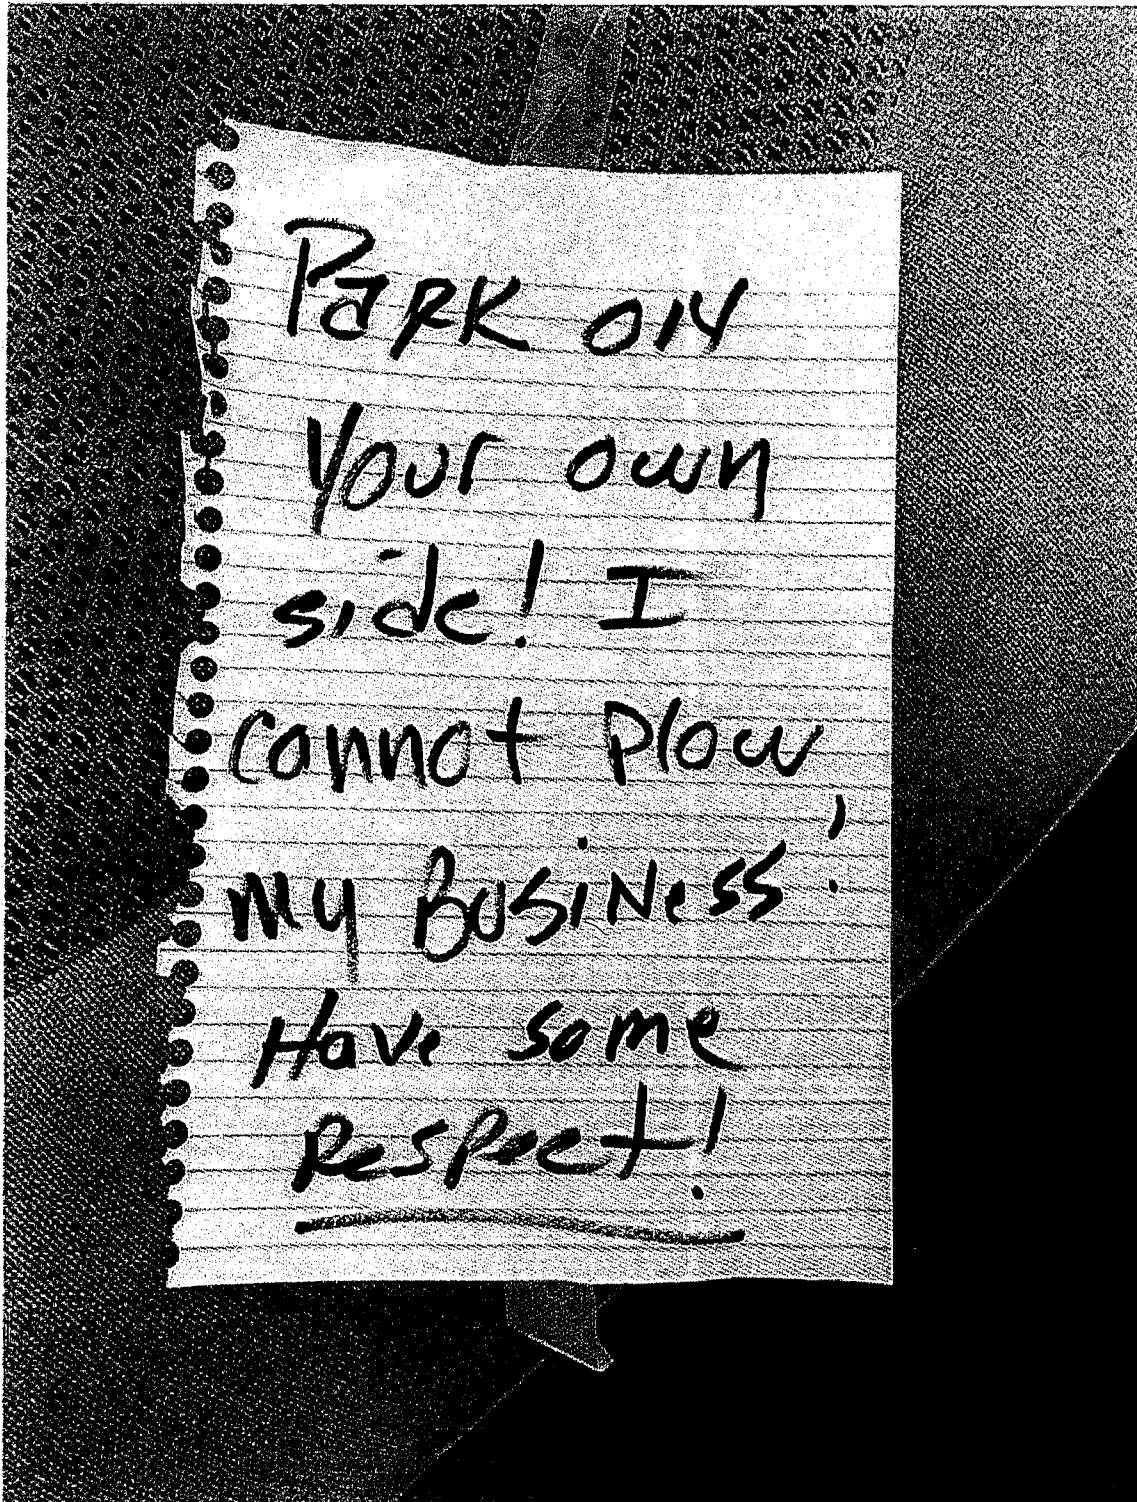 Park on
Your own
side! I
cannot Plow
my Business!
Have some
Respect!